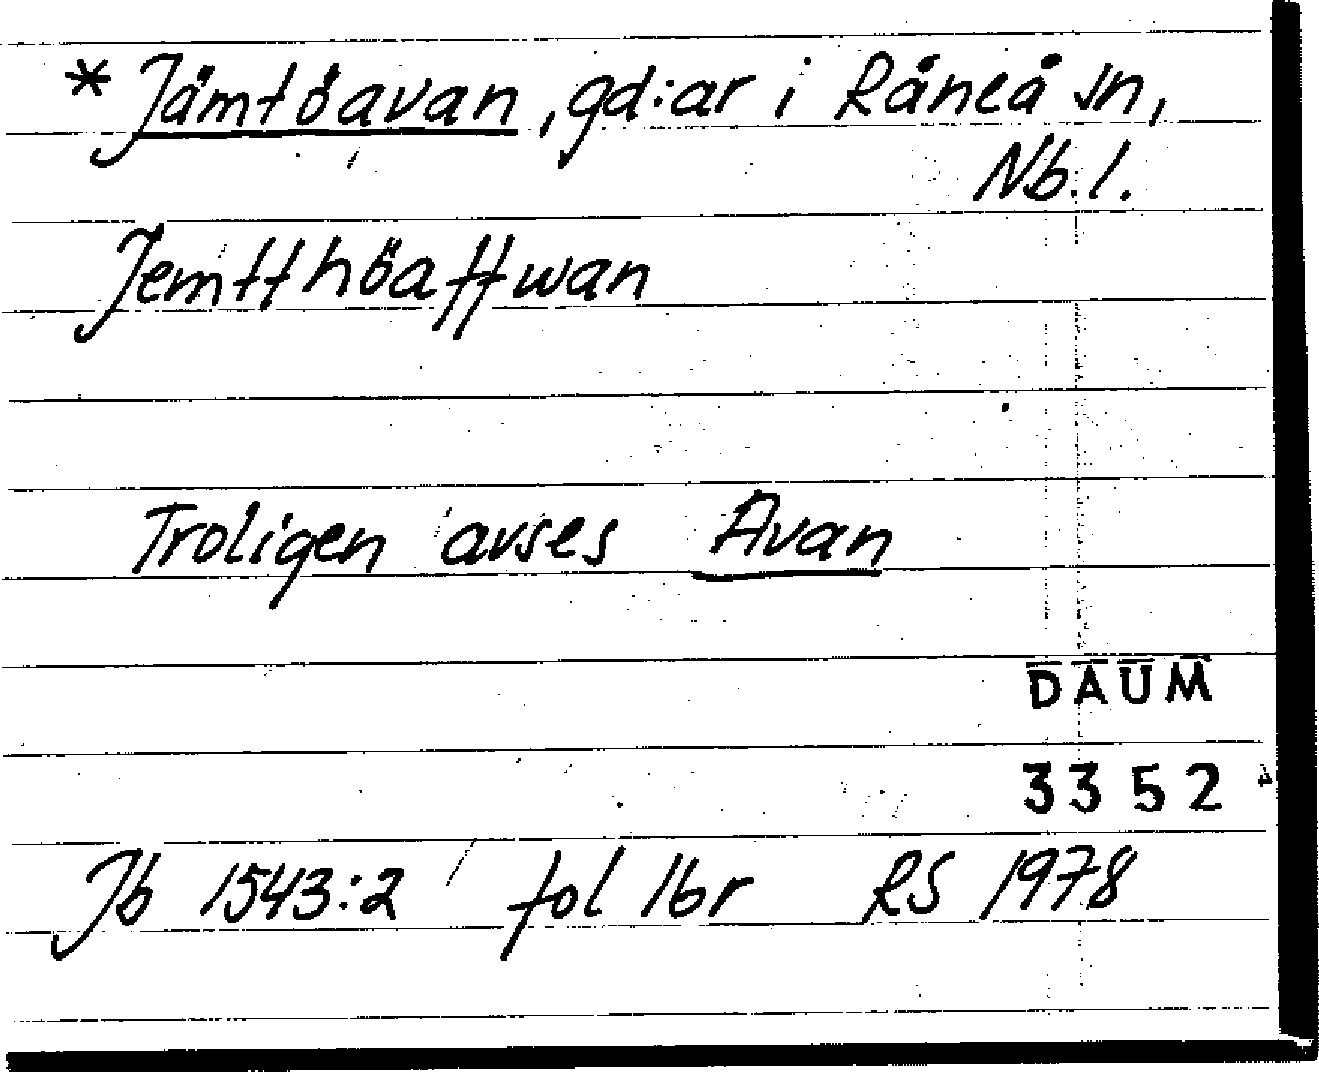 * Jämtöavan, gd:ar i Råneå sn,
Nb.l.
Jemtthöaffwan
Troligen avses Avan
DAUM
3352
Jb 1543:2 fol 16r RS 1978